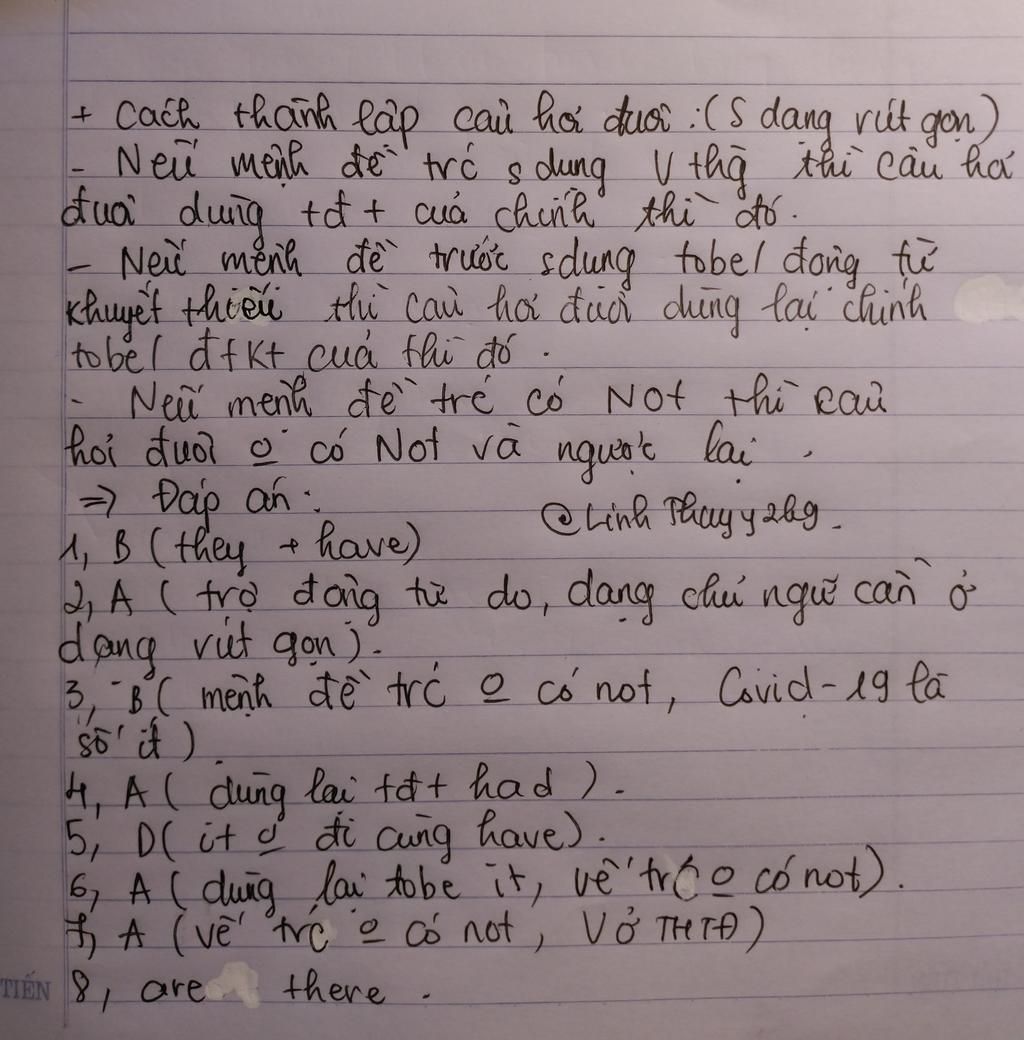 + Cách thành lập câu hỏi đuôi : (S dạng rút gọn)
- Nếu mệnh đề trc s dụng V thg thì câu hỏi
đuôi dùng tđt của chính thì đó.
- Nếu mệnh đề trước sdụng tobe / động từ
khuyết thiếu thì câu hỏi đuôi dùng lại chính
tobe / đtKt của thì đó.
- Nếu mệnh đề trc có Not thì câu
hỏi đuôi o có Not và ngược lại.
=> Đáp án:
@Linh Thuyy2kg.
1, B (they → have)
2, A ( trợ động từ do, dạng chủ ngữ cần ở
dạng rút gọn).
3, B ( mệnh đề trc o có not, Covid-19 là
số ít )
4, A ( dùng lại tđt had ).
5, D ( it o đi cùng have).
6, A ( dùng lại tobe it, vế trc o có not).
7, A (vế trc o có not, V ở THTĐ)
TIẾN 8, are there.